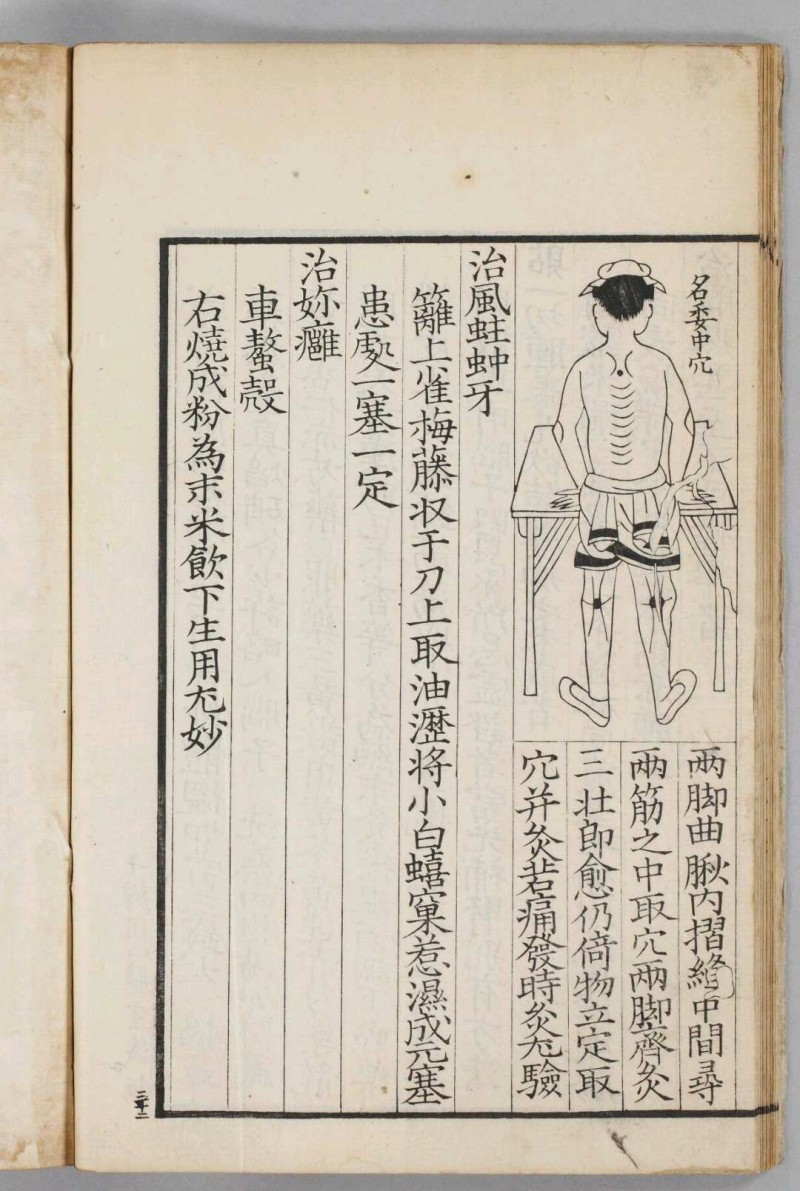 名委中穴
兩脚曲𦛨內摺縫中間尋
兩筋之中取穴兩脚齊灸
三壯即愈仍倚物立定取
穴并灸若痛發時灸尤驗
治風蛀蚛牙
籬上雀梅藤収于刀上取油瀝将小白蟢窠惹濕成元塞
患䖏一塞一定
治妳癰
車螯殻
右燒成粉為末米飲下生用尤妙
三十二